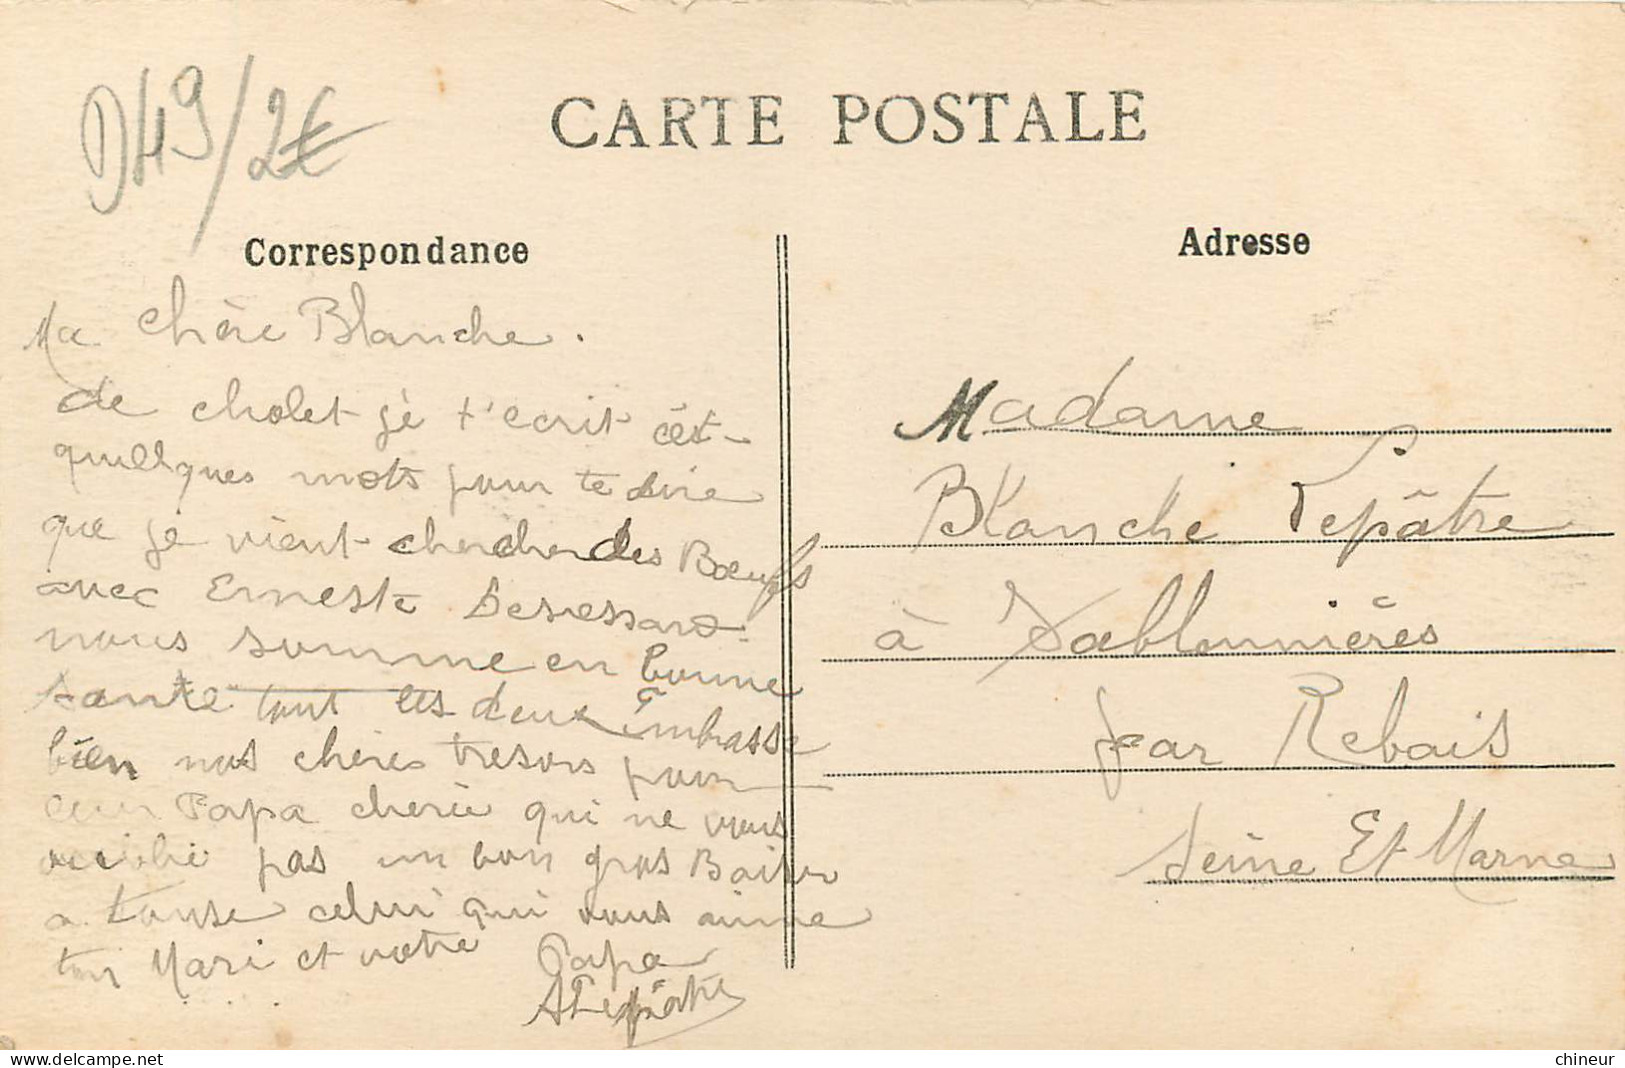 D49/2€
CARTE POSTALE
Correspondance
Ma chère Blanche.
de cholet je t'ecrit cést
quellques mots pour te dire
que je vient chercher des Bœufs
avec Erneste Desessard
nous somme en bonne
sante tout les deux Embrasse
bien nos chères tresors pour
leur Papa cherie qui ne vous
oublie pas un bon gros Baiser
a touse celui qui vous aime
ton Mari et votre Papa
ALepâtre
Adresse
Madame
Blanche Lepâtre
à Sablonnières
par Rebais
Seine Et Marne
delcampe.net
chineur